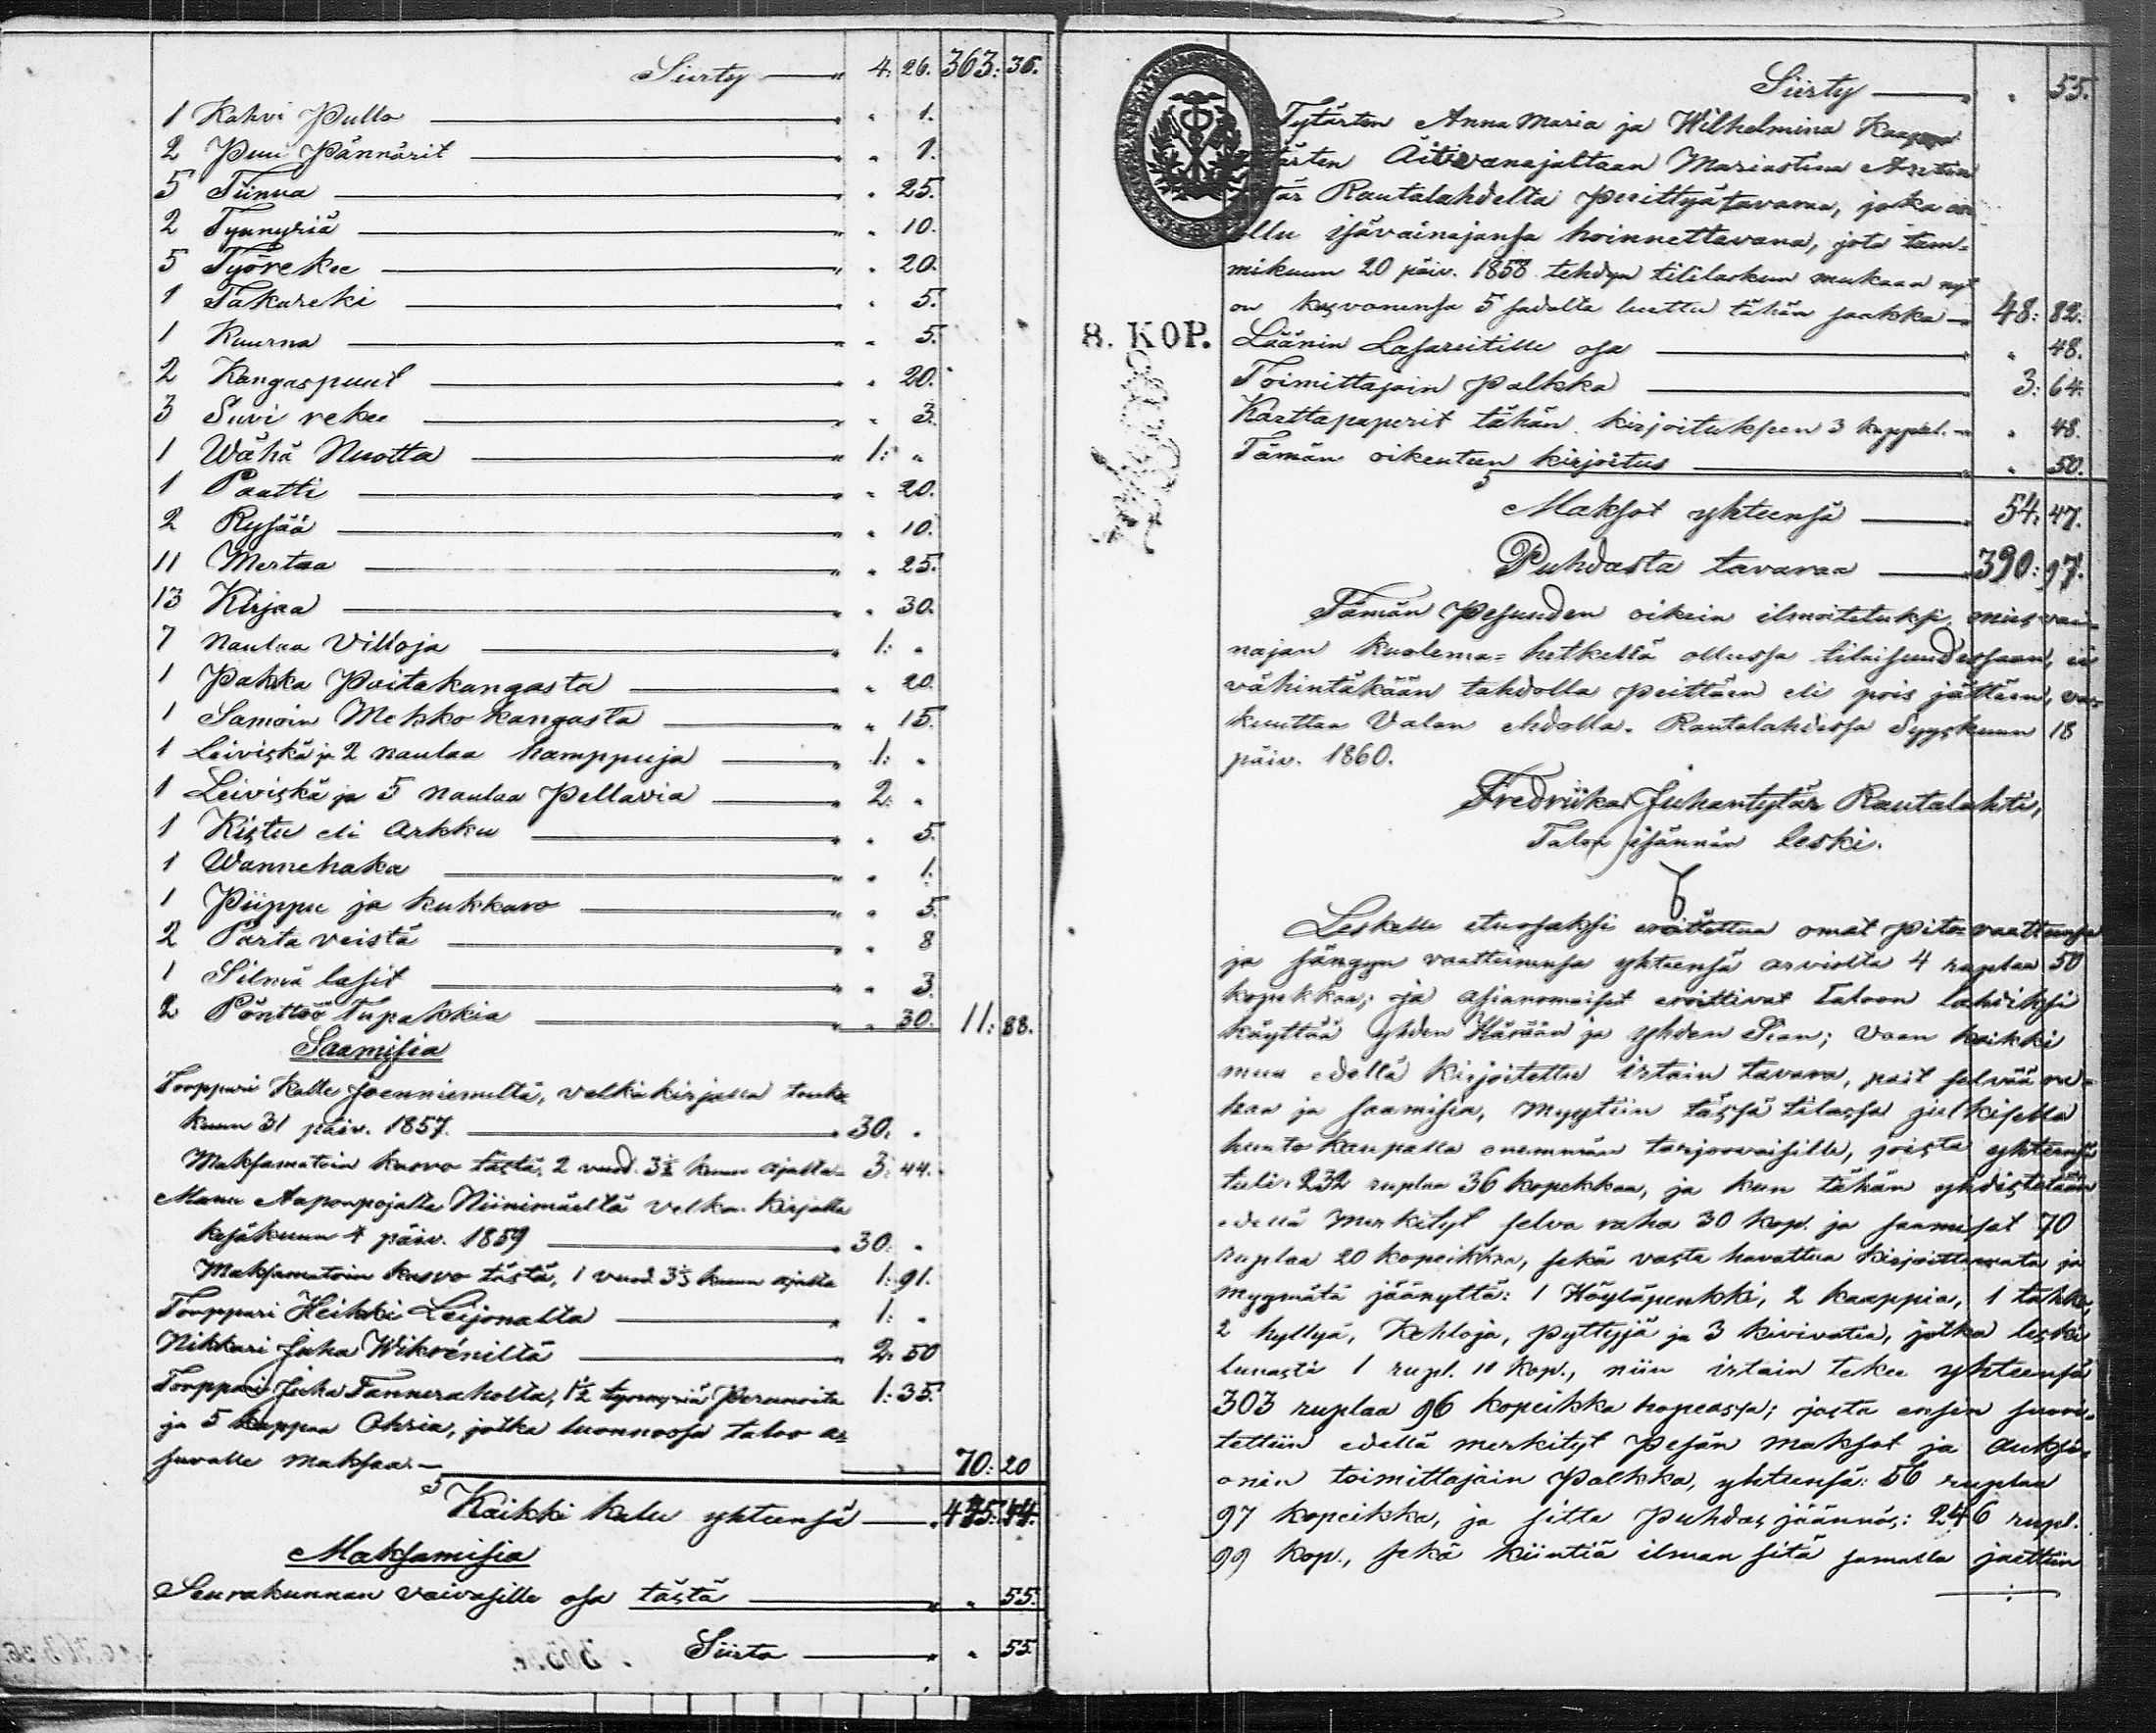 Siirty — 4: 26. 363: 36.
1 Kahvi Pullo — „ „ 1.
2 Puu Pännärit — „ „ 1.
5 Tiinua — „ „ 25.
2 Tynnyriä — „ „ 10.
5 Työrekee — „ „ 20.
1 Takareki — „ „ 5.
1 Kuurna — „ „ 5.
2 Kangaspuut — „ „ 20.
3 Suvi rekee — „ „ 3.
1 Wähä Nuotta — „ 1: „
1 Paatti — „ „ 20.
2 Rysää — „ „ 10.
11 Mertaa — „ „ 25.
13 Kirjaa — „ „ 30.
7 naulaa Villoja — „ 1: „
1 Pakka Paitakangasta — „ „ 20.
1 Samoin Mekko kangasta — „ „ 15.
1 Leiviskä ja 2 naulaa hamppuja — „ 1: „
1 Leiviskä ja 5 naulaa Pellavia — „ 2: „
1 Kistu eli Arkku — „ „ 5.
1 Wannehaka — „ „ 1.
1 Piippu ja kukkaro — „ „ 5.
2 Parta veistä — „ „ 8
1 Silmä lasit — „ „ 3.
2 Pönttöö Tupakkia — „ „ 30. 11: 88.
Saamisia
Torppari Kalle Joenniemeltä, velkakirjalla touko
kuun 31 päiv. 1857. — 30. „
Maksamatoin kasvo tästä, 2 vuod. 3½ kuun ajalta 3: 44.
Manu Aaponpojalta Niinimäeltä velka- kirjalta
kesäkuun 4 päiv. 1859 — 30: „
Maksamatoin kasvo tästä, 1 vuod. 3⅓ kuun ajalta 1: 91.
Torppari Heikki Leijonalta — 1: „
Nikkari Juha Wikreniltä — 2: 50
Torppari Juha Tanneraholta, 1½ tynnyriä Perunoita 1: 35.
ja 5 kappaa Ohria, jotka luonnossa taloo a=
suvalle maksaa. — 70: 20
Kaikki kalu yhteensä — 445: 44.
Maksamisia
Seurakunnan vaivasille osa tästä — „ „ 55.
Siirto — „ „ 55
8. KOP.
Siirty — „ „ 55.
Tytärten Anna Maria ja Wilhelmina
Äitivainajaltaan Mariastina Antin
tär Rautalahdelta Perittyä tavaraa, joka on
ollu isävainajansa hoinnettavana, jota tam=
mikuun 20 päiv. 1858 tehdyn tililaskun mukaan nyt
on kasvonensa 5 sadalta luettu tähän saakka — 48: 82.
Läänin Lasareitille osa — „ „ 48.
Toimittajain Palkka — 3: 64.
Karttapaperit tähän kirjoitukseen 3 kappal. — „ 48.
Tämän oikeuteen kirjoitus — „ „ 50.
Maksot yhteensä — 54: 47.
Puhdasta tavaraa — 390: 97.
Tämän Pesuuden oikein ilmoitetuksi, mies vai=
najan kuolema= hetkellä ollussa tilaisuudessaan, ei
vähintäkään tahdolla peittäen eli pois jättäen, va=
kuuttaa Valan ehdolla. Rautalahdessa Syyskuun 18
päiv. 1860.
Fredriika Juhantytär Rautalahti,
Talon isännän leski.
Leskelle etuosaksi eroitettua omat pito= vaatteensa
ja sängyn vaatteinensa yhteensä arviolta 4 ruplaa 50
kopekkaa; ja asianomaiset eroittivat Taloon lahdiksi
käyttää yhden Härään ja yhden Sian; vaan kaikki
muu edellä kirjoitettu irtain tavara, pait selvää ra=
haa ja saamisia, myytiin tässä tilassa julkisella
huuto kaupalla enemmän tarjoovaisille, joista yhteensä
tuli 232 ruplaa 36 kopekkaa, ja kun tähän yhdistetään
edellä Merkityt selva raha 30 kop. ja saamiset 70
ruplaa 20 kopeikkaa, sekä vasta havattua kirjoittamata ja
myymätä jäänyttä: 1 Höyläpenkki, 2 kaappia, 1 tahko,
2 hyllyä, Kehloja, pyttyjä ja 3 kivivatia, jotka leski
lunasti 1 rupl. 10 kop., niin irtain tekee yhteensä
303 ruplaa 96 kopeikka hopeassa; josta ensin suori=
tettiin edellä merkityt Pesän maksot ja auksi=
onin toimittajain Palkka, yhteensä: 56 ruplaa
97 kopeikka, ja sitte Puhdas jäännös: 246 rupl.
99 kop., sekä kiintiä ilman sitä samalla jaettiin